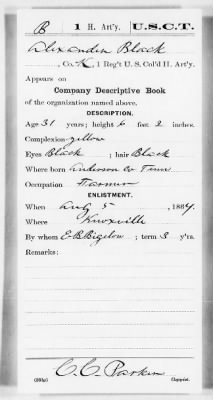 B 1 H. Art'y. U.S.C.T.
Alexander Black
, Co. K, 1 Reg't U. S. Col'd H. Art'y.
Appears on
Company Descriptive Book
of the organization named above.
DESCRIPTION.
Age 31 years; height 6 feet 2 inches.
Complexion yellow
Eyes Black; hair Black
Where born Anderson Co Tenn
Occupation Farmer
ENLISTMENT.
When Aug 5, 1864.
Where Knoxville
By whom E. B. Bigelow; term 3 y'rs.
Remarks:
C. C. Parkin
Copyist.